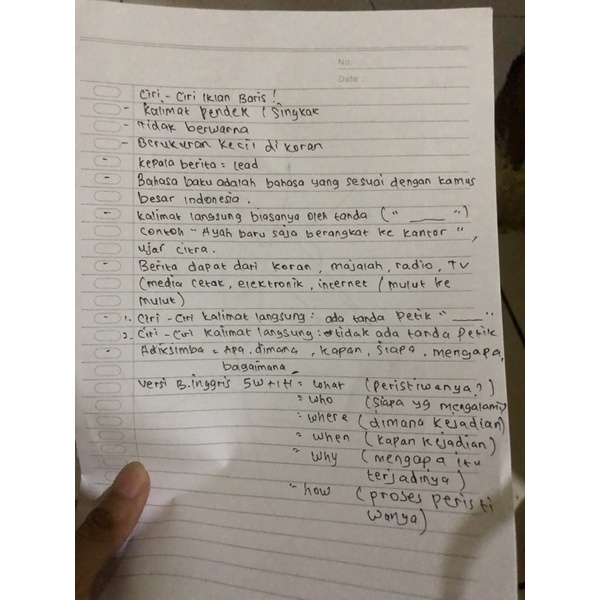 No. :
Date :
Ciri - Ciri Iklan Baris !
- Kalimat Pendek / Singkak
- Tidak berwarna
- Berukuran kecil di koran
- kepala berita = lead
- Bahasa baku adalah bahasa yang sesuai dengan kamas
besar indonesia.
- kalimat langsung biasanya oleh tanda (" ____ ")
Contoh " Ayah baru saja berangkat ke kantor ",
ujar citra.
- Berita dapat dari koran, majalah, radio, TV
(media cetak, elektronik, internet / mulut ke
mulut)
- 1. Ciri - Ciri kalimat langsung : ada tanda Petik " ____ "
2. Ciri - Ciri kalimat langsung : tidak ada tanda petik
- Adiksimba = Apa, dimana, kapan, siapa, mengapa,
bagaimana
Versi B.inggris 5W+1H = what (peristiwanya?)
= who (siapa yg mengalami)
= where (dimana kejadian)
= when (kapan kejadian)
= why (mengapa itu
terjadinya)
= how (proses peristi
wanya)